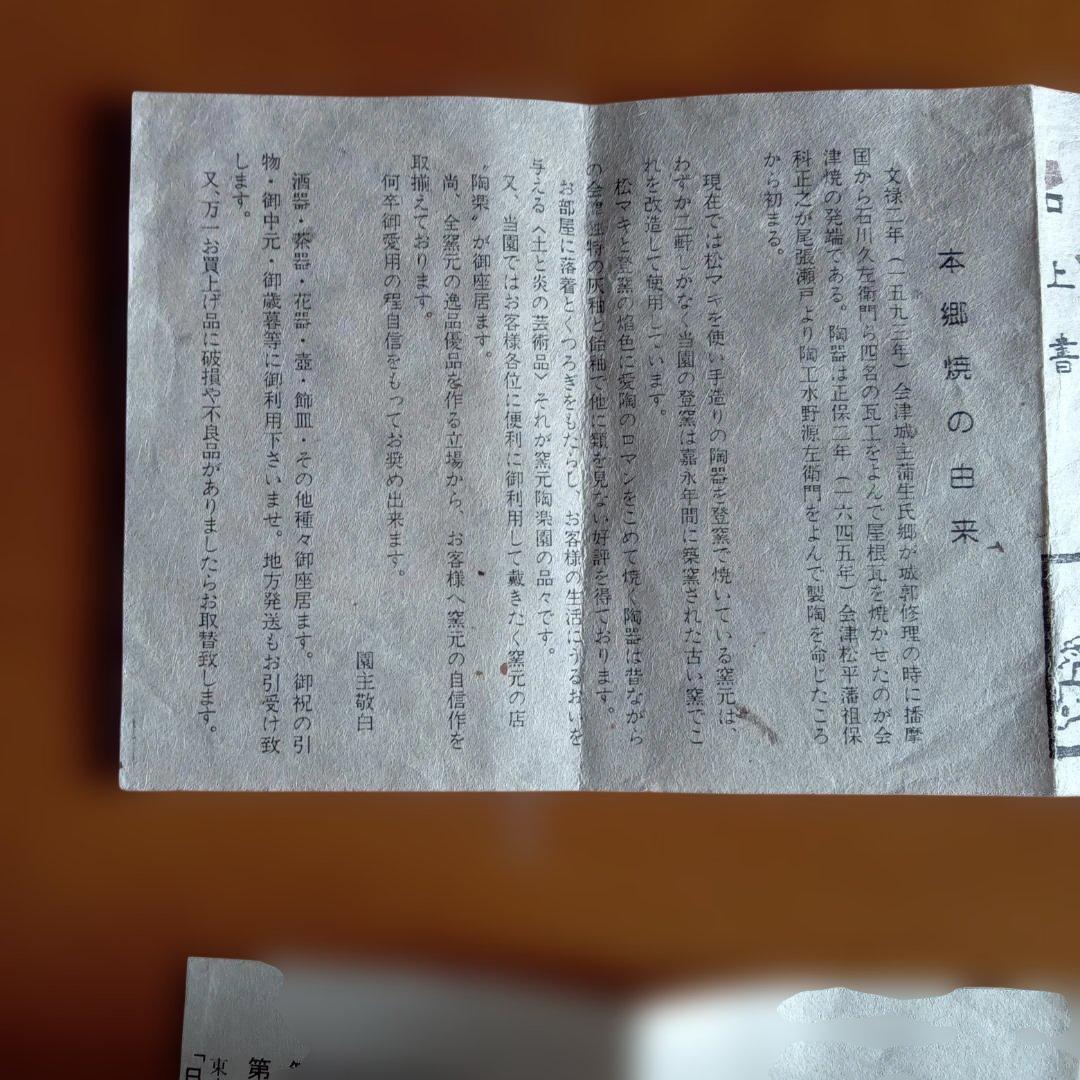 口上書
本郷焼の由来
文禄二年（一五九三年）会津城主蒲生氏郷が城郭修理の時に播摩
国から石川久左衛門ら四名の瓦工をよんで屋根瓦を焼かせたのが会
津焼の発端である。陶器は正保二年（一六四五年）会津松平藩祖保
科正之が尾張瀬戸より陶工水野源左衛門をよんで製陶を命じたころ
から初まる。
現在では松マキを使い手造りの陶器を登窯で焼いている窯元は、
わずか二軒しかなく当園の登窯は嘉永年間に築窯された古い窯でこ
れを改造して使用しています。
松マキと登窯の焰色に愛陶のロマンをこめて焼く陶器は昔ながら
の会津独特の灰釉と飴釉で他に類を見ない好評を得ております。
お部屋に落着とくつろぎをもたらし、お客様の生活にうるおいを
与える〈土と炎の芸術品〉それが窯元陶楽園の品々です。
又、当園ではお客様各位に便利に御利用して戴きたく窯元の店
〝陶楽〟が御座居ます。
尚、全窯元の逸品優品を作る立場から、お客様へ窯元の自信作を
取揃えております。
何卒御愛用の程自信をもってお奨め出来ます。
園主敬白
酒器・茶器・花器・壺・飾皿・その他種々御座居ます。御祝の引
物・御中元・御歳暮等に御利用下さいませ。地方発送もお引受け致
します。
又、万一お買上げ品に破損や不良品がありましたらお取替致します。
第
東
「日